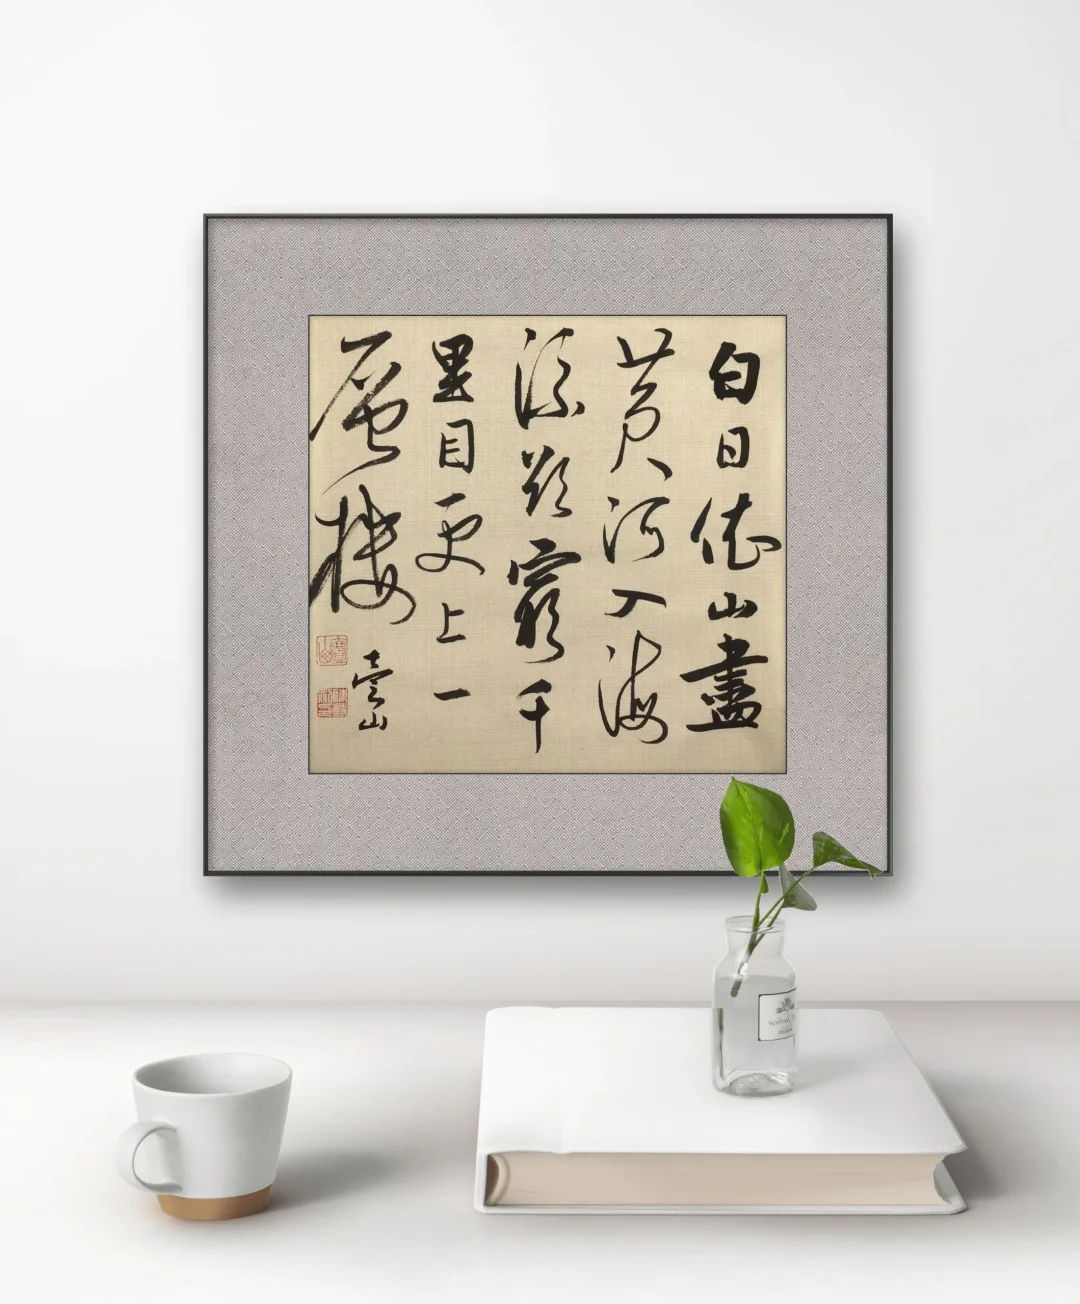 白日依山盡
黄河入海
流欲窮千
里目更上一
層樓